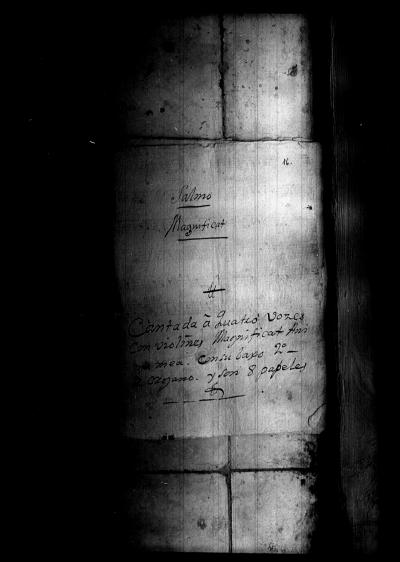 16.
Salmo
Magnificat
Cantada à quatro vozes
Con violines Magnificat Ani
ma mea. Con su baxo 2º
organo. y son 8 papeles